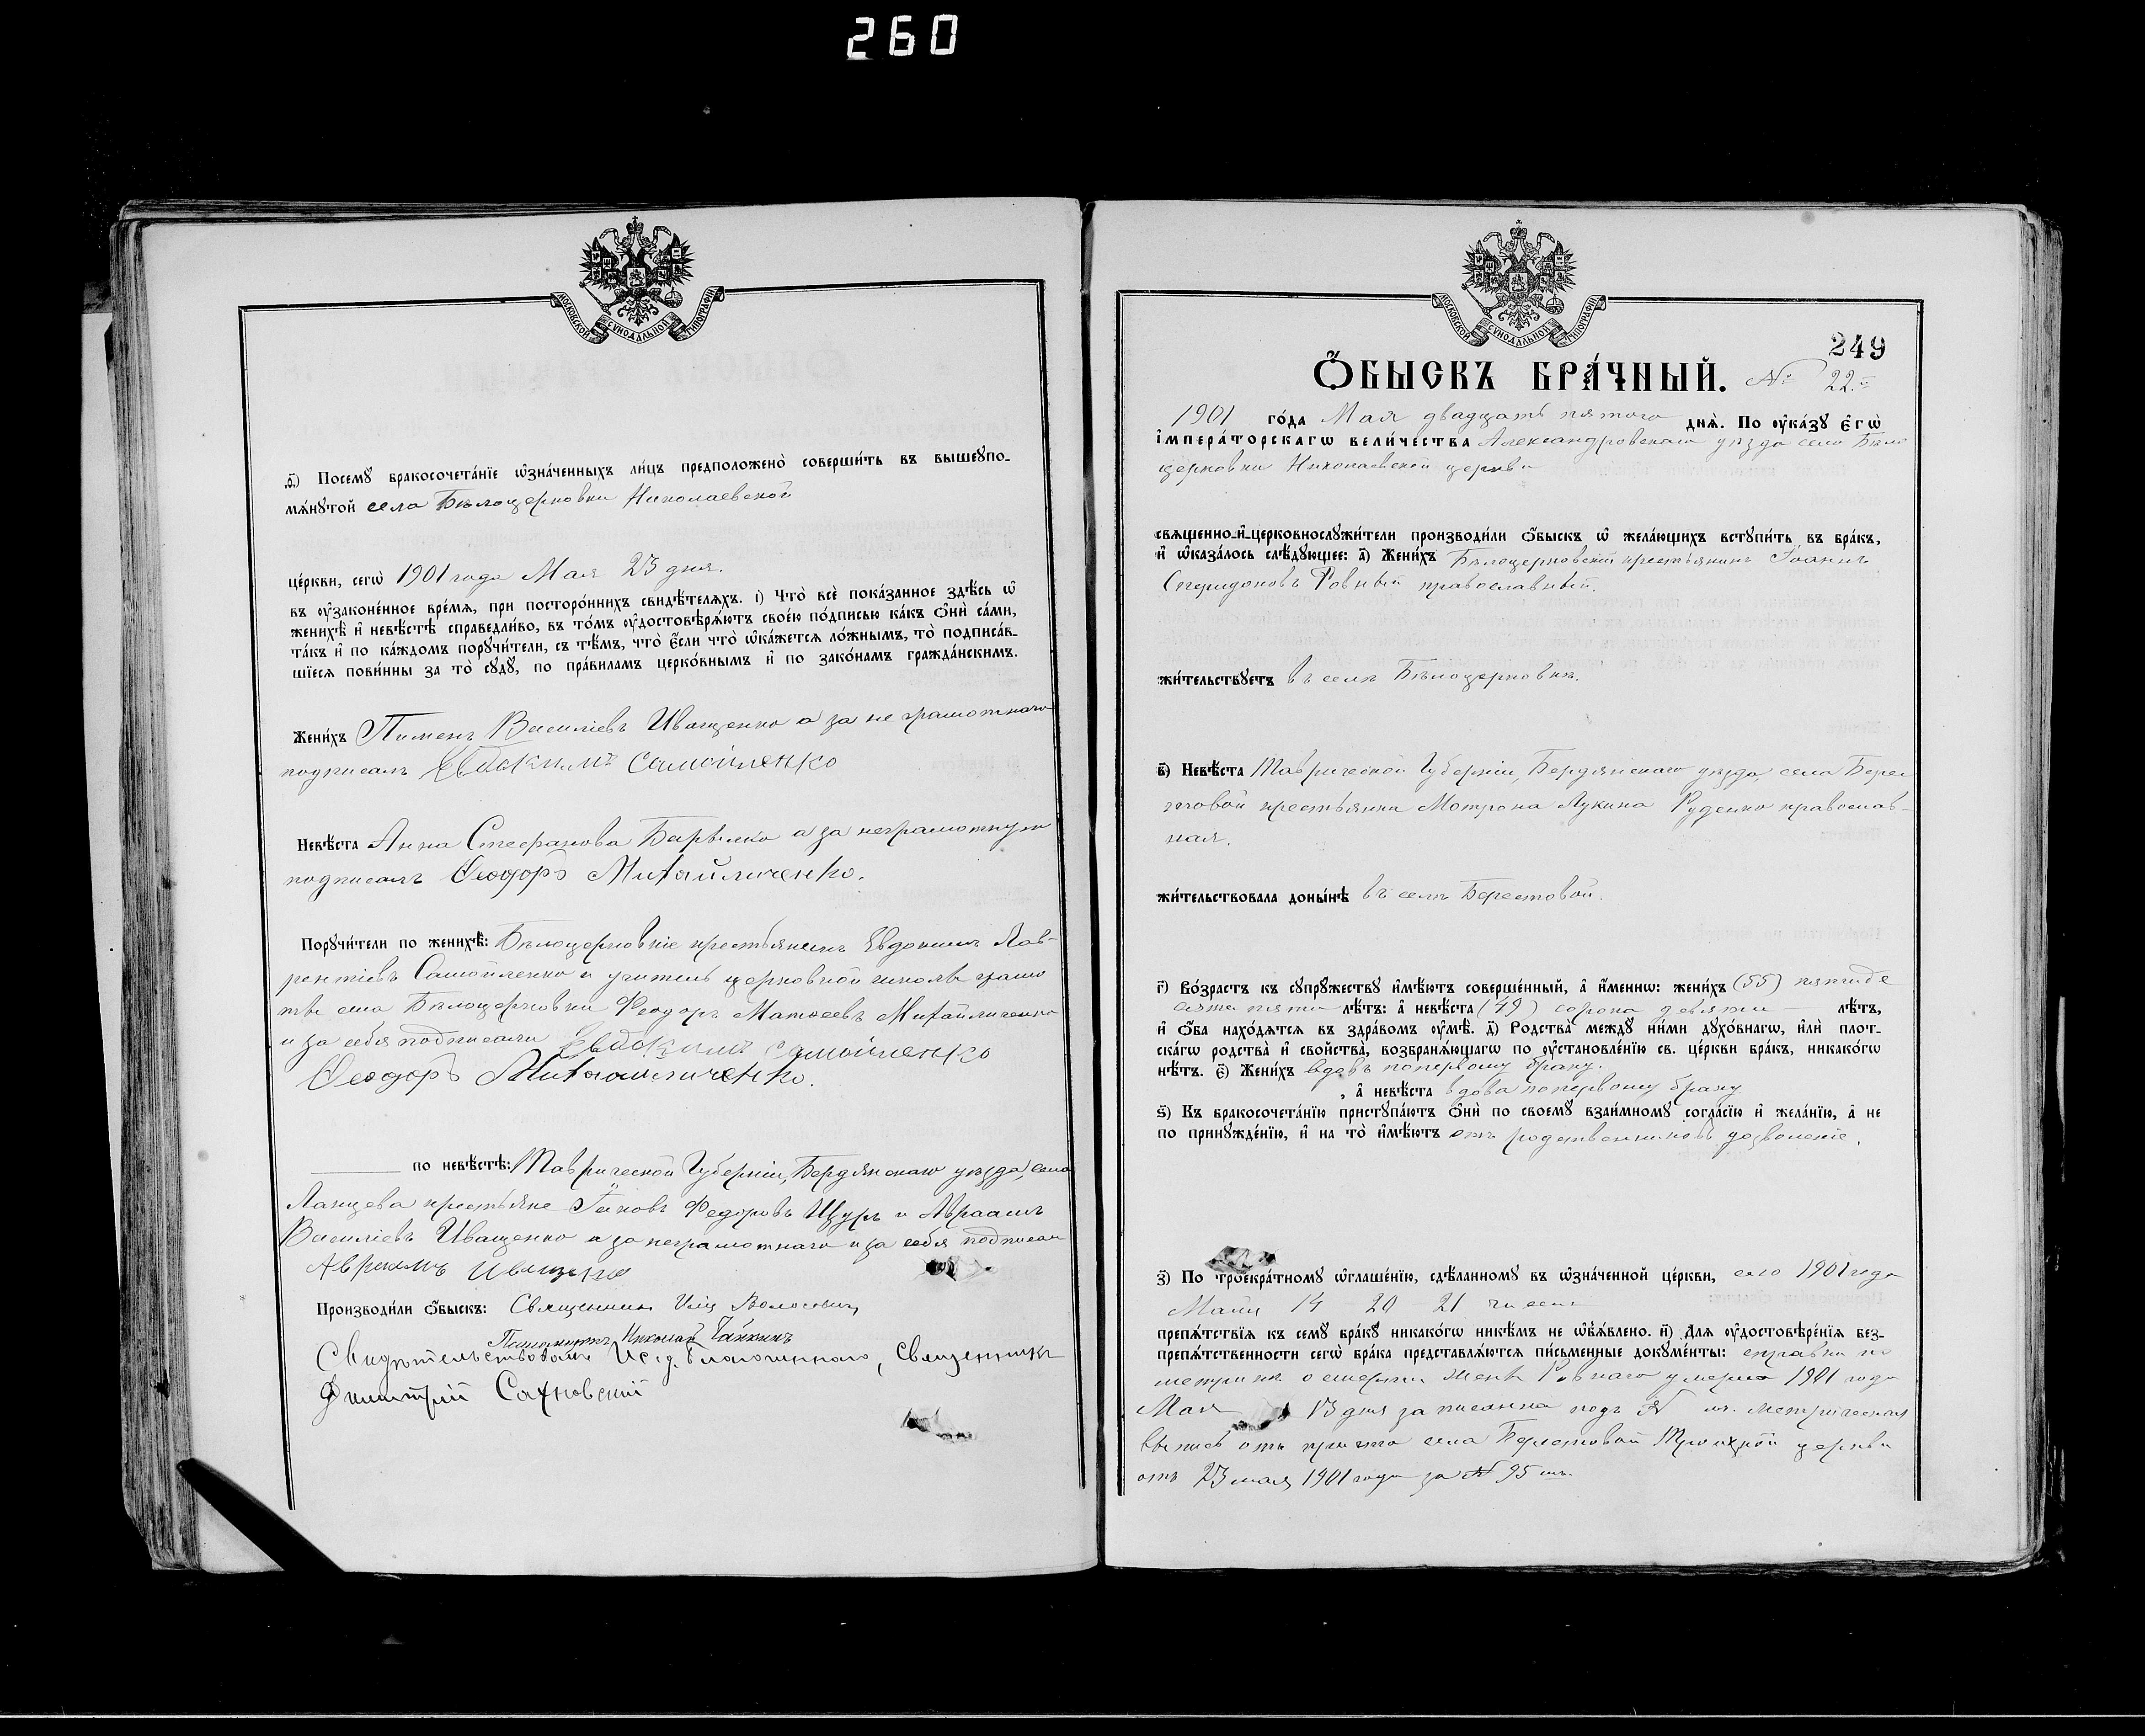 260
МОСКОВСКОЙ СѴНОДАЛЬНОЙ ТИПОГРАФІИ
ѳ҃) Посемꙋ бракосочета́нїе ѡ҆зна́ченныхъ ли́цъ предположено̀ соверши́ть въ вышеꙋпо-
мѧ́нꙋтой села Бѣлоцерковки Николаевской
це́ркви, сегѡ̀ 1901 года Мая 23 дня.
въ ᲂу҆законе́нное вре́мѧ, при посторо́ннихъ свидѣ́телѧхъ. і҃) Что̀ всѐ пока́занное здѣ́сь ѡ҆
женихѣ̀ и҆ невѣ́стѣ справедли́во, въ то́мъ ᲂу҆достовѣрѧ́ютъ свое́ю по́дписью ка́къ ѻ҆нѝ са́ми,
та́къ и҆ по ка́ждомъ порꙋчи́тели, съ тѣ́мъ, что̀ є҆́сли что̀ ѡ҆ка́жетсѧ ло́жнымъ, то̀ подписа́в-
шїесѧ пови́нны за то̀ сꙋдꙋ̀, по пра́виламъ церко́внымъ и҆ по зако́намъ гражда́нскимъ.
Жени́хъ Пименъ Василіевъ Иващенко а за не грамотнаго
подписалъ Евдокимъ Самойленко
Невѣ́ста Анна Стефанова а за неграмотную
подписалъ Ѳеодоръ Михайличенко.
Порꙋчи́тели по женихѣ̀: Бѣлоцерковскіе крестьянинъ Евдокимъ Лав-
рентіевъ Самойленко и учитель церковной школы грамо
ты села Бѣлоцерковки Феодоръ Матѳеевъ Михайличенко
и за себя подписали Евдокимъ Самойленко
Ѳеодоръ Михайличенко.
по невѣ́стѣ: Таврической Губерніи, Бердянскаго уѣзда, села
крестьяне Іаковъ Федоровъ Щуръ и Авраамъ
Василіевъ Иващенко а за неграмотнаго и за себя подписал
Аврамъ Иващенко
Производи́ли ѻ҆́быскъ: Священникъ Илія Волосевич
Псаломщикъ Николай Чайкинъ
Свидѣтельствовалъ Ис. д. Благочиннаго, Священникъ
Димитрій Сахновскій
МОСКОВСКОЙ СѴНОДАЛЬНОЙ ТИПОГРАФІИ
249
Ѻ҆́БЫСКЪ БРА́ЧНЫЙ. № 22.
1901 го́да Мая двадцать пятого днѧ̀. По ᲂу҆ка́зꙋ є҆гѡ̀
і҆мпера́торскагѡ вели́чества Александровскаго уѣзда село Бѣло
церковки Николаевской церкви
свѧще́нно-и҆-церковнослꙋжи́тели производи́ли ѻ҆́быскъ ѡ҆ жела́ющихъ встꙋпи́ть въ бра́къ,
и҆ ѡ҆каза́лось слѣ́дꙋющее: а҃) Жени́хъ Бѣлоцерковскій крестьянинъ Іоаннъ
Спиридоновъ Ровный православный.
жи́тельствꙋетъ въ селѣ Бѣлоцерковкѣ.
в҃) Невѣ́ста Таврической Губерніи, Бердянскаго уѣзда, села Берес
товой крестьянка Мотрона Лукина Руденко православ-
ная.
жи́тельствовала доны́нѣ въ селѣ Берестовой.
г҃) Во́зрастъ къ сꙋпрꙋ́жествꙋ и҆мѣ́ютъ соверше́нный, а҆ и҆́меннѡ: жени́хъ (55) пятиде
сяти пяти лѣ́тъ: а҆ невѣ́ста (49) сорока девяти лѣ́тъ,
и҆ ѻ҆́ба нахо́дѧтсѧ въ здра́вомъ ᲂу҆мѣ̀. д҃) Родства̀ междꙋ̀ ни́ми дꙋхо́внагѡ, и҆лѝ плот-
ска́гѡ родства̀ и҆ сво́йства̀, возбранѧ́ющагѡ по ᲂу҆становле́нїю св. це́ркви бра́къ, никако́гѡ
нѣ́тъ. є҃) Жени́хъ вдовъ по первому браку.
, а҆ невѣ́ста вдова по первому браку
ѕ҃) Къ бракосочета́нїю пристꙋпа́ютъ ѻ҆нѝ по своемꙋ̀ взаи́мномꙋ согла́сїю и҆ жела́нїю, а҆ не
по принꙋжде́нїю, и҆ на то̀ и҆мѣ́ютъ отъ родственниковъ дозволеніе.
з҃) По троекра́тномꙋ ѡ҆глаше́нїю, сдѣ́ланномꙋ въ ѡ҆зна́ченной це́ркви, сего 1901 года
Маія 14 20 21 числа
препѧ́тствїѧ къ семꙋ̀ бра́кꙋ никако́гѡ никѣ́мъ не ѡ҆б̾ѧ́влено. и҃) Длѧ ᲂу҆достовѣре́нїѧ без-
препѧ́тственности сегѡ̀ бра́ка представлѧ́ютсѧ пи́сьменные докꙋме́нты: справка по
метрикѣ о смерти жены Ровнаго умерла 1901 года
Мая 13 дня записанна подъ № метрическая
выпись отъ причта села Берестовой Троицкой церкви
отъ 23 мая 1901 года за № 95